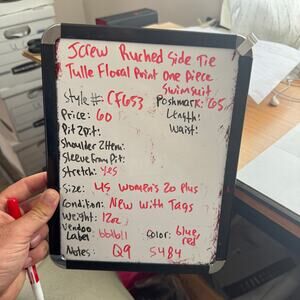 JCrew Ruched Side Tie
Tulle Floral Print One Piece
Swimsuit
Style# CF653 Poshmark: 65
Price: 60 Length:
Pit 2 Pit: Waist:
Shoulder 2 Hem:
Sleeve From Pit:
Stretch: yes
Size: US Women's 20 Plus
Condition: New With Tags
Weight: 12oz
Vendoo Label Color: blue, red
Notes: Q9 5484